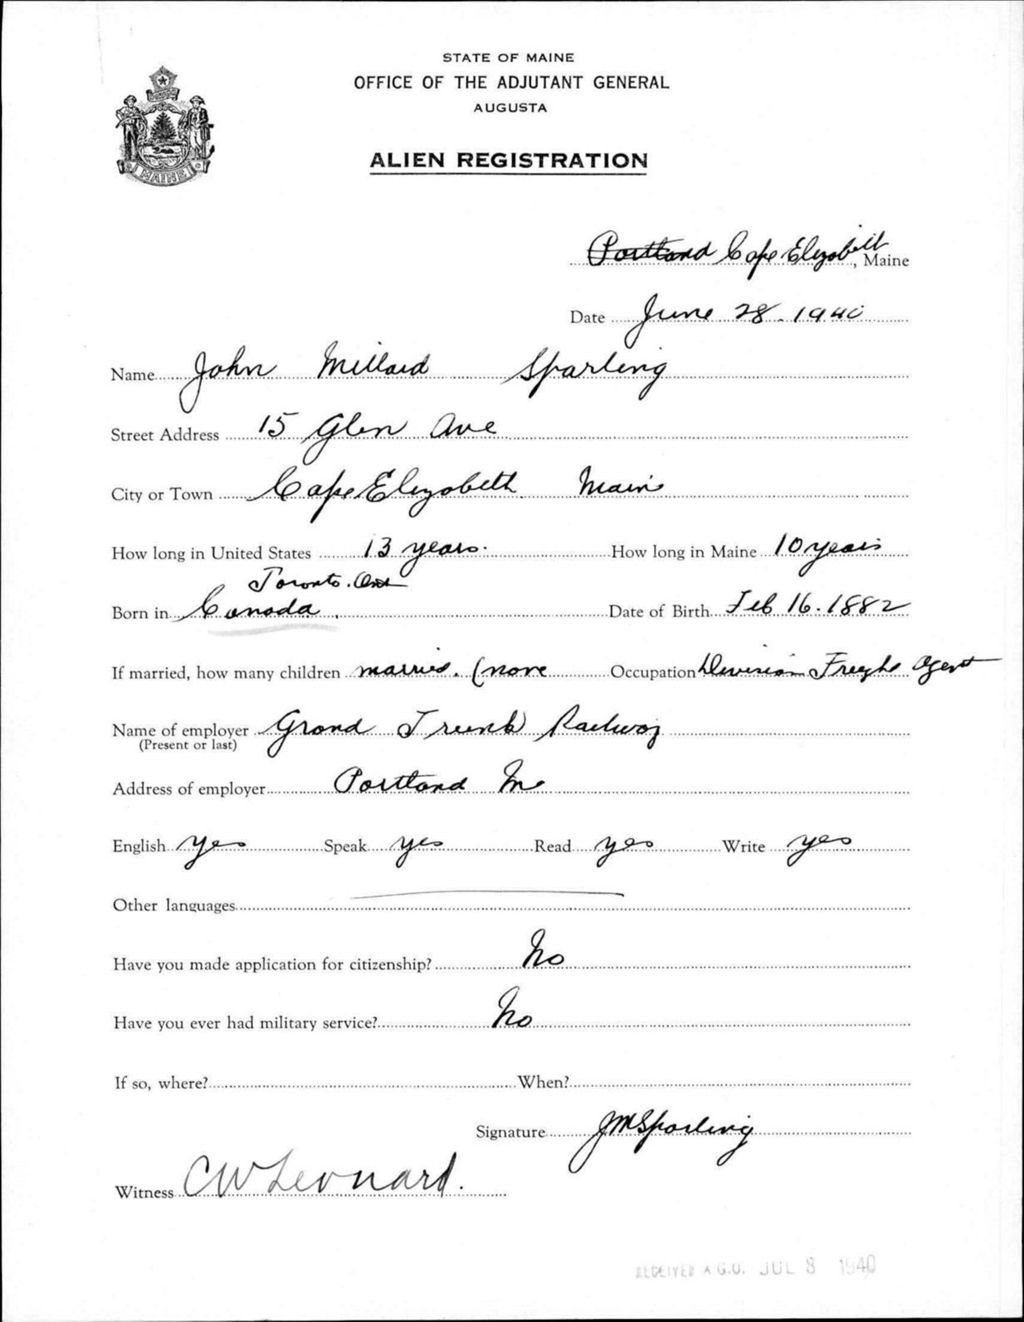 STATE OF MAINE
OFFICE OF THE ADJUTANT GENERAL
AUGUSTA
ALIEN REGISTRATION
MAINE
Portland Cape Elizabeth, Maine
Date June 28. 1940
Name John Millard Sparling
Street Address 15 Glen Ave
City or Town Cape Elizabeth Maine
How long in United States 13 years. How long in Maine 10 years
Toronto. Ont
Born in Canada. Date of Birth Feb 16. 1882
If married, how many children married. (none Occupation Division Freight Agent
Name of employer Grand Trunk Railway
(Present or last)
Address of employer Portland Me
English yes Speak yes Read yes Write yes
Other languages
Have you made application for citizenship? No
Have you ever had military service? No
If so, where? When?
Signature JMSparling
Witness CW Leonard.
RECEIVED A.G.O. JUL 8 1940